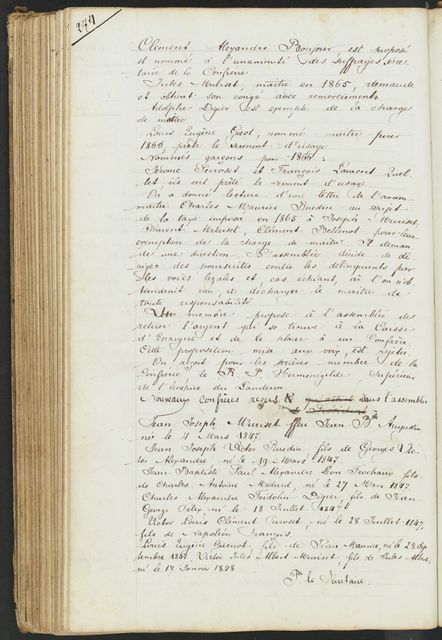 274
Clément Alexandre Bonjour, est proposé
et nommé à l'unanimité des suffrages Secré-
taire de la Confrérie.
Jules Muriset, maître en 1865, demande
et obtient son congé avec remerciements.
Adolphe Digier est exempté de la charge
de maître
Louis Eugène Girot, nommé maître pour
1866, prête le serment d'usage
Nommés garçons pour 1866:
Jérome Perroset et François Laurent Quel-
let, ils ont prêté le serment d'usage.
On a donné lecture d'une lettre de l'ancien
maître Charles Maurice Ruedin au sujet
de la taxe imposée en 1865 à Joseph Muriset,
Clément Muriset, Clément Bellenot pour leur
exemption de la charge de maître. Il deman
de une direction. L'assemblée décide de di
riger des poursuites contre les délinquants par
les voies légales et cas échéant, si l'on n'ob
tiendrait rien, de décharger le maître de
toute responsabilité
Un membre propose à l'assemblée de
retirer l'argent qui se trouve à la Caisse
d'Epargne et de le placer à un Confrère.
Cette proposition mise aux voix, est rejetée.
On avait pour les prières membre de la
Confrérie le R. P. Herménigilde Supérieur
de l'hospice du Landeron
Nouveaux confrères reçus dans l'assemblée
Jean Joseph Muriset ffeu Jean Bte Auguste
né le 4 Mars 1847.
Jean Joseph Victor Ruedin, fils de Georges Vic-
tor Alexandre né le 19 Mars 1847
Jean Baptiste Paul Alexandre Léon Frochaux, fils
de Charles Antoine Médard, né le 27 Mars 1847
Charles Alexandre Fridolin Digier, fils de Jean
George Félix né le 18 Juillet 1847
Victor Louis Clément Perroset, né le 28 Juillet 1847,
fils de Napoléon François.
Louis Eugène Guenot, fils de Jean Maurice, né le 28 Sep
tembre 1847. Victor Jules Albert Muriset, fils de Jules
né le 17 Janvier 1848
Pr le Secrétaire.